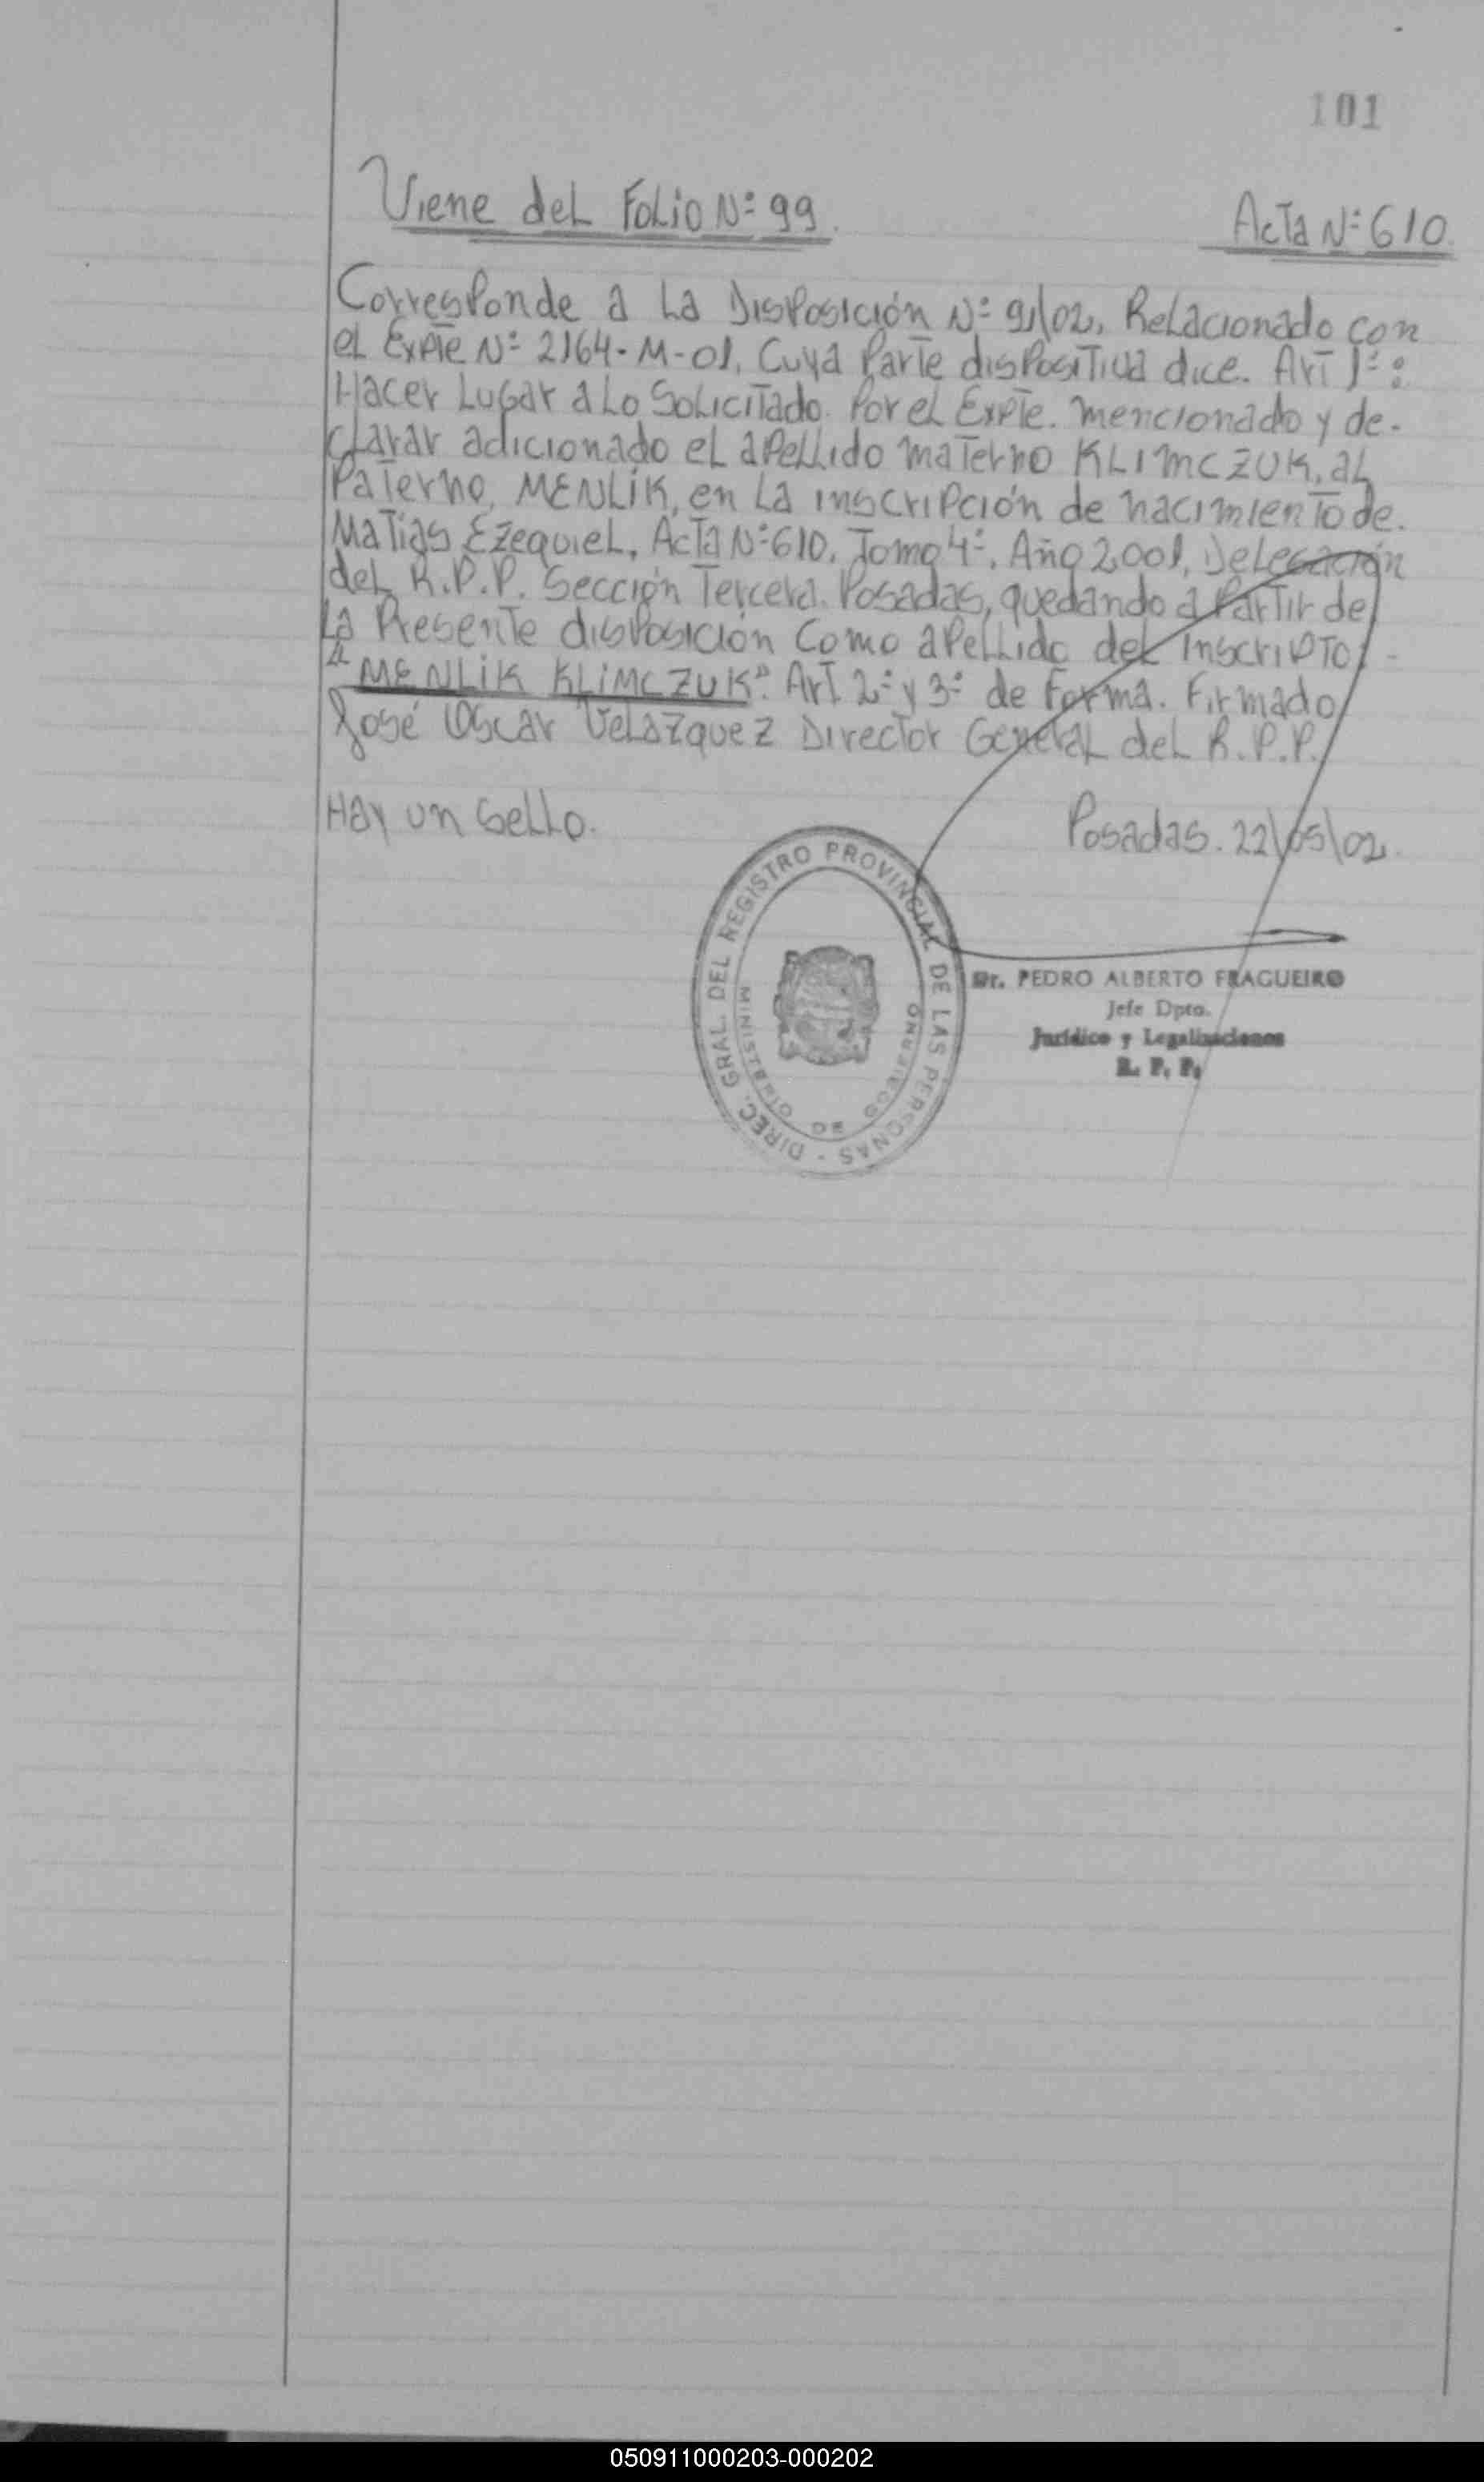 101
Viene del Folio N° 99.
Acta N° 610
Corresponde a La Disposición N° 91/02, Relacionado con
el Expte N° 2164-M-01, Cuya Parte dispositiva dice. Art 1°:
Hacer Lugar a Lo Solicitado Por el Expte. mencionado y de-
clarar adicionado el apellido materno KLIMCZUK, al
Paterno, MENLIK, en La inscripción de nacimiento de.
Matias Ezequiel, Acta N° 610, Tomo 4°, Año 2001, Delegación
del R.P.P. Sección Tercera. Posadas, quedando a Partir de
La Presente disposición Como apellido del inscripto: -
"MENLIK KLIMCZUK". Art 2° y 3° de Forma. Firmado
José Oscar Velazquez Director General del R.P.P.
Hay un Sello.
Posadas. 22/05/02.
DIREC. GRAL. DEL REGISTRO PROVINCIAL DE LAS PERSONAS -
MINISTERIO DE GOBIERNO
Dr. PEDRO ALBERTO FRAGUEIRO
Jefe Dpto.
Jurídico y Legalizaciones
R. P. P.
050911000203-000202